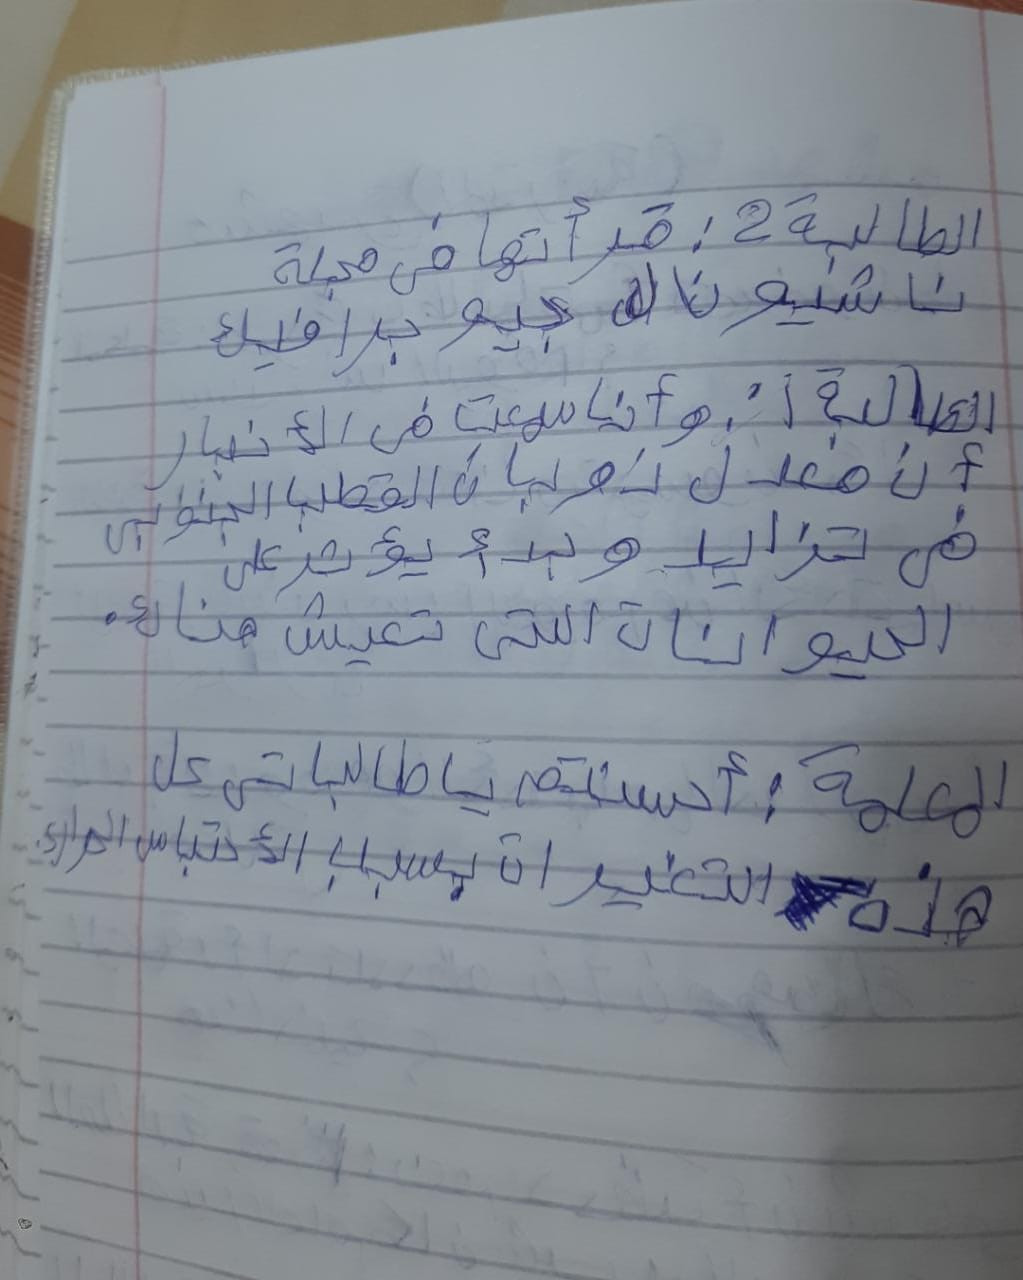 الطالبة 2: قرأتها في مجلة
ناشيونال جيوجرافيك
الطالبة 1: وأنا سمعت في الأخبار
أن معدل ذوبان القطب الجنوبي
في تزايد وبدأ يؤثر على
الحيوانات التي تعيش هناك.
المعلمة: أحسنتم يا طالباتي كل
هذه التغيرات بسبب الأحتباس الحراري